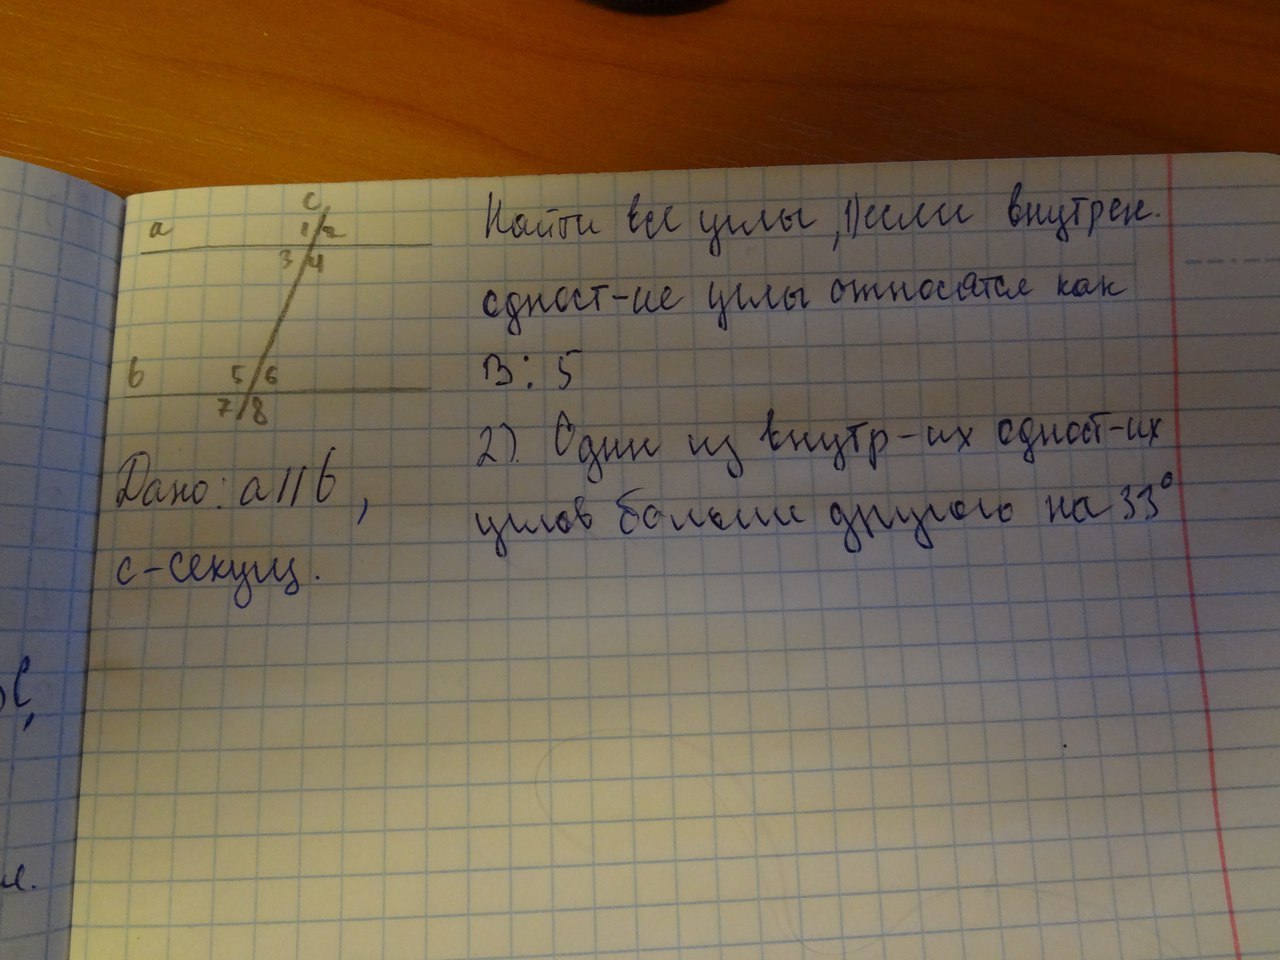 c
a
1 2
3 4
b
5 6
7 8
Дано: a || b,
c-секущ.
Найти все углы, 1) если внутрен.
одност-ие углы относятся как
3:5
2). Один из внутр-их одност-их
углов больше другого на 33°